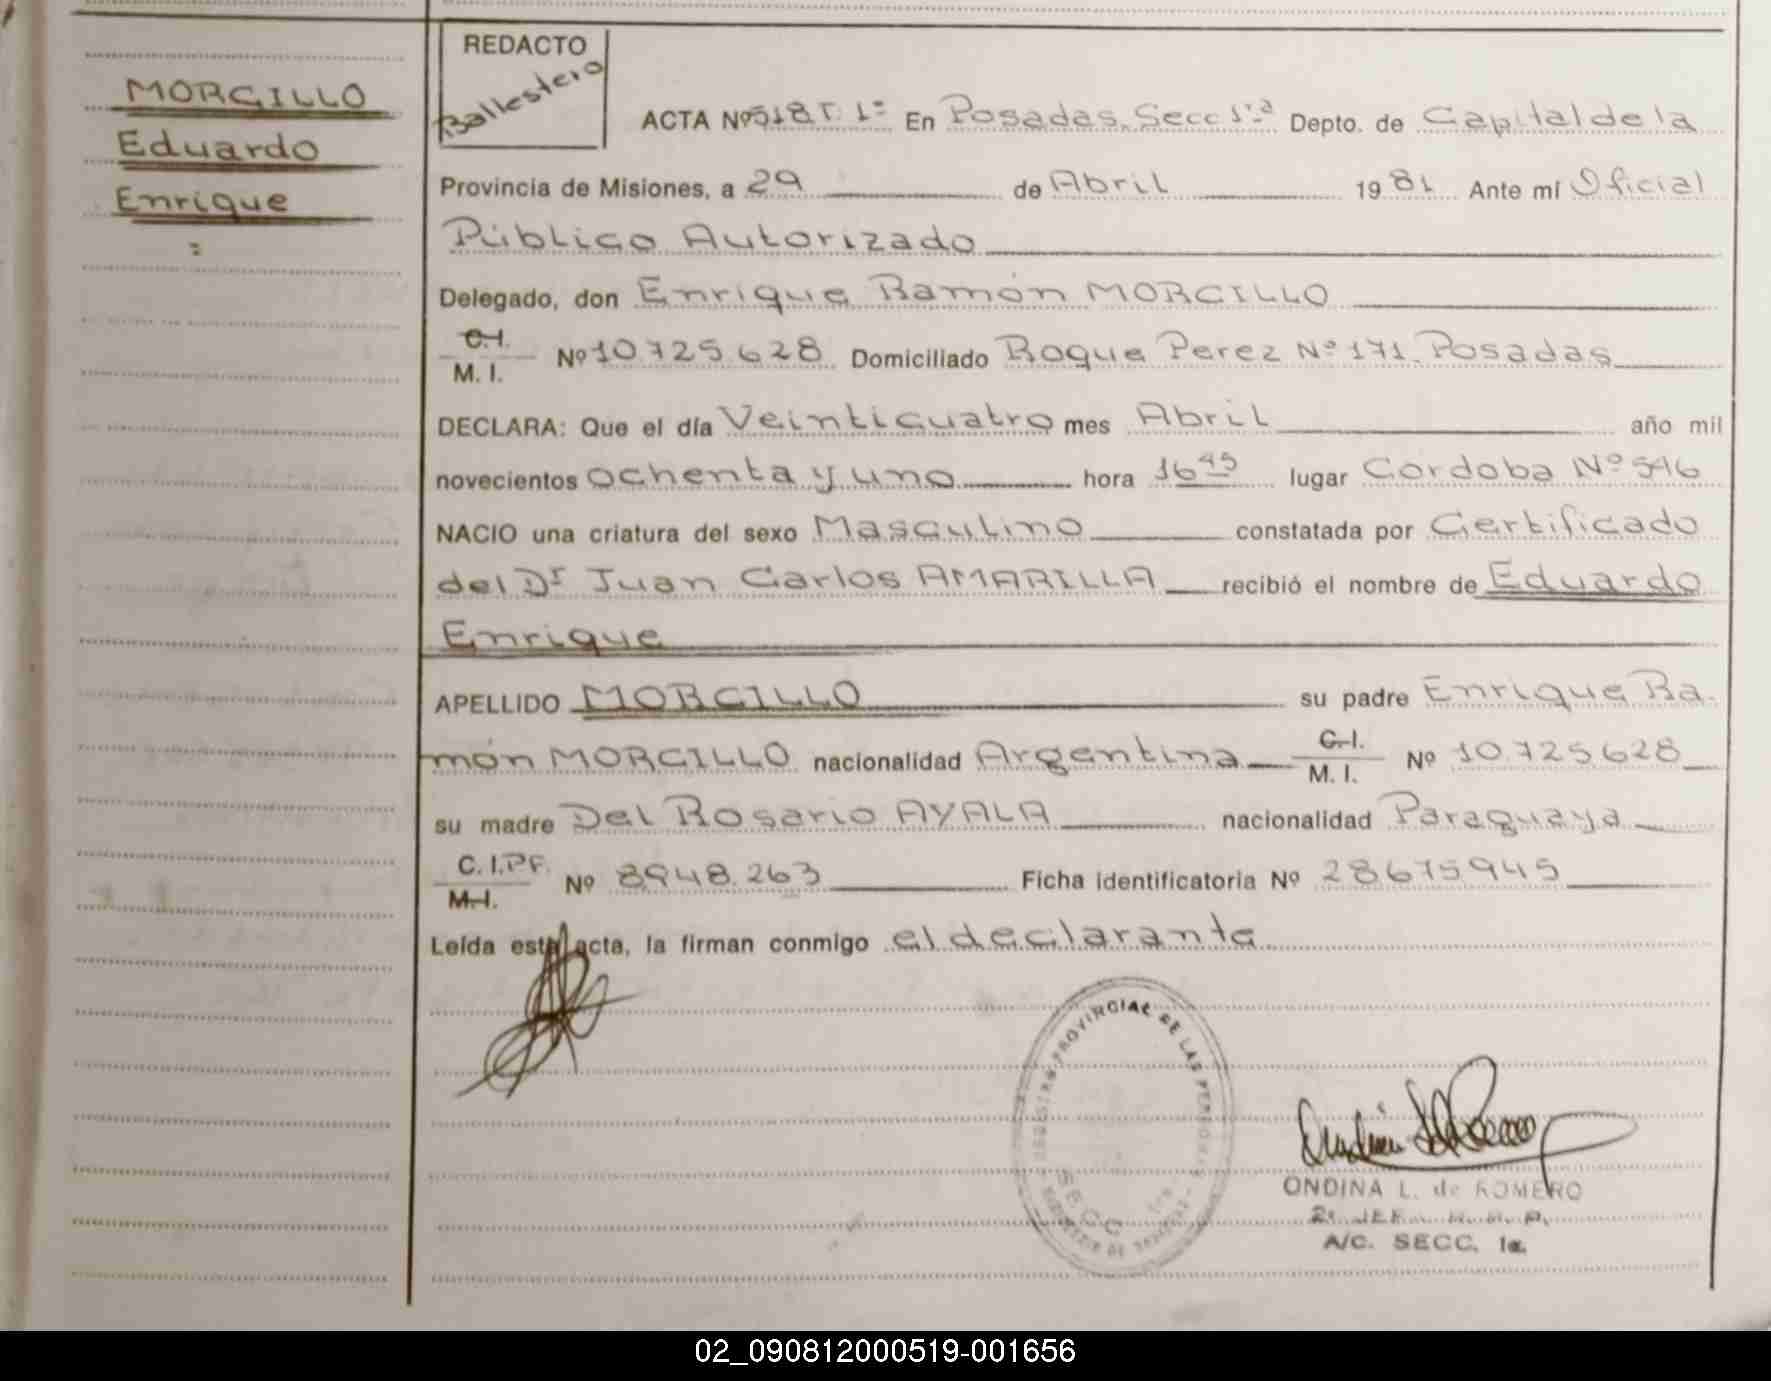 MORCILLO
Eduardo
Enrique
REDACTO
Ballestero
ACTA Nº 518 T. 1º En Posadas, Secc 1ra Depto. de Capital de la
Provincia de Misiones, a 29 de Abril 1981 Ante mí Oficial
Público Autorizado
Delegado, don Enrique Ramón MORCILLO
C.I.
M. I. Nº 10.725.628 Domiciliado Roque Perez Nº 171. Posadas
DECLARA: Que el día Veinticuatro mes Abril año mil
novecientos ochenta y uno hora 16 45 lugar Córdoba Nº 546
NACIO una criatura del sexo Masculino constatada por Certificado
del Dr Juan Carlos AMARILLA recibió el nombre de Eduardo
Enrique
APELLIDO MORCILLO su padre Enrique Ra-
món MORCILLO nacionalidad Argentina C.I.
M. I. Nº 10.725628
su madre Del Rosario AYALA nacionalidad Paraguaya
C. I.PF.
M.I. Nº 8948.263 Ficha identificatoria Nº 28675945
Leída esta acta, la firman conmigo el declarante
REGISTRO PROVINCIAL DE LAS PERSONAS
SECC. 1ra
ONDINA L. de ROMERO
A/C. SECC. 1a.
02_090812000519-001656